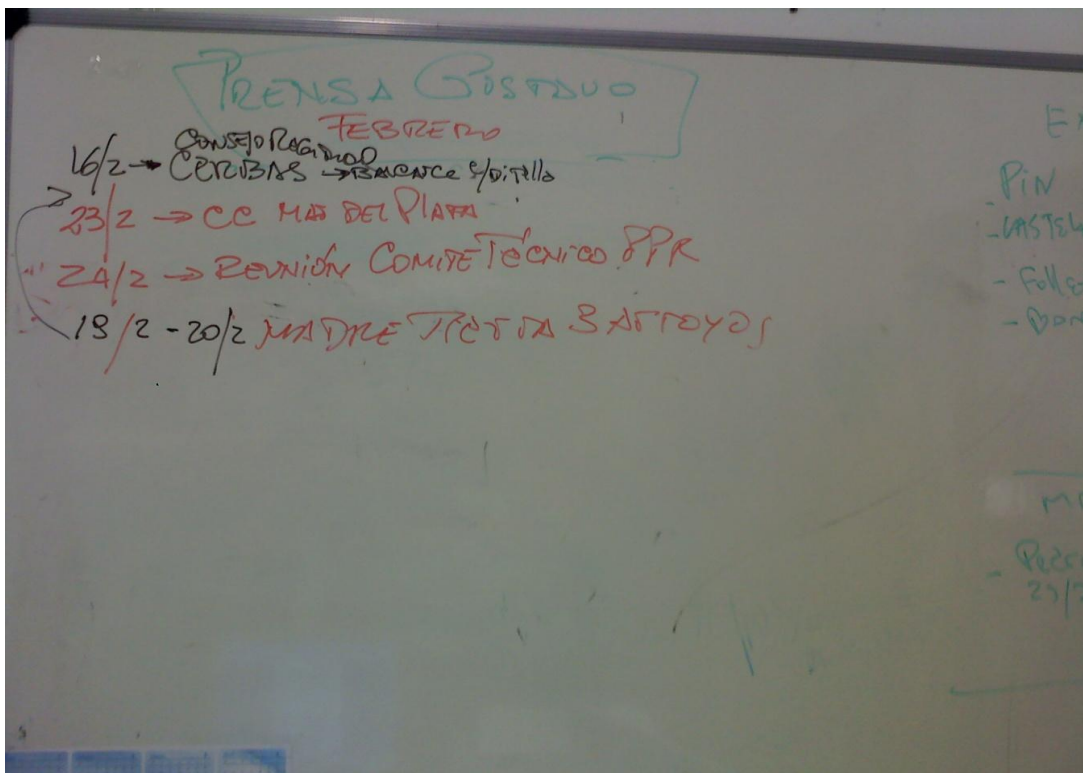 PRENSA GUSTAVO
FEBRERO
CONSEJO REGIONAL
16/2 → CERUBAS → BALANCE S/DiTella
23/2 → CC MAR DEL PLATA
24/2 → REUNIÓN COMITE TÉCNICO PPR
19/2 - 20/2 MADRE TIERRA 3 ARROYOS
PiN